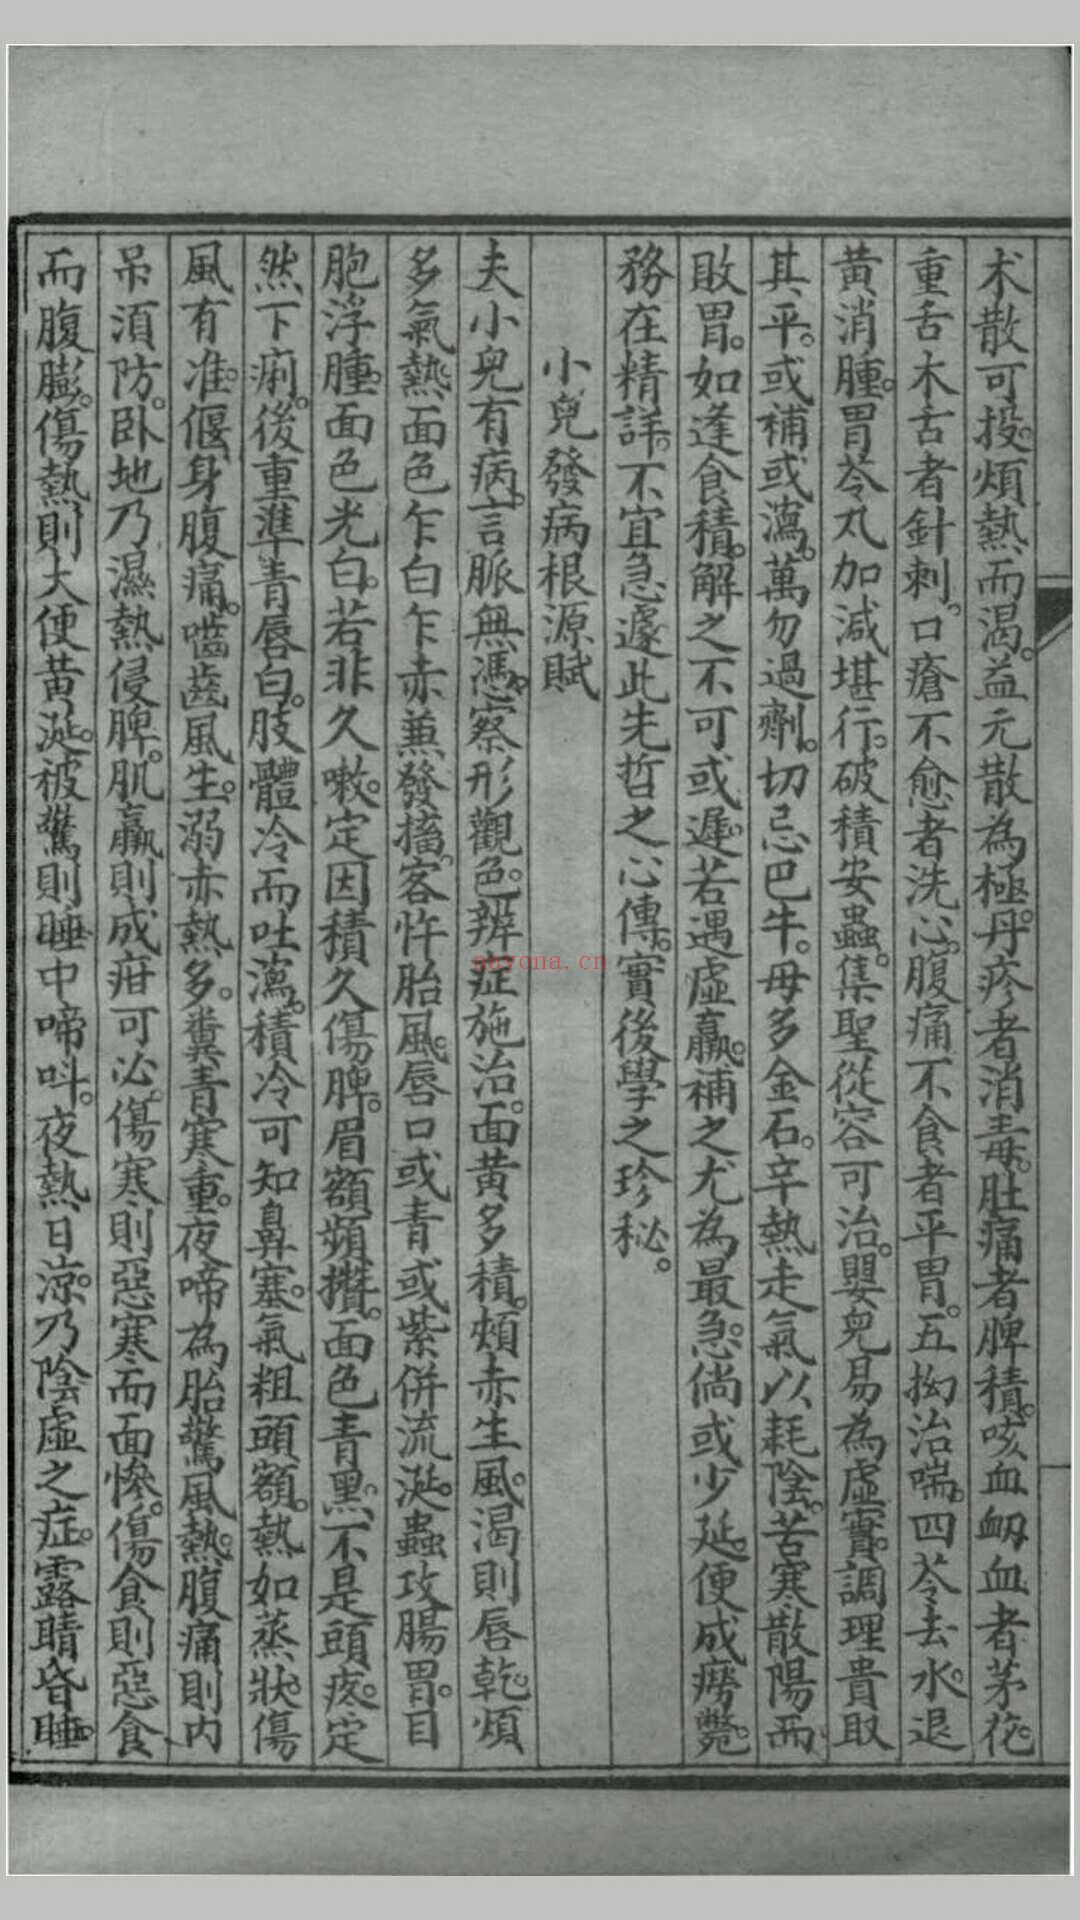 术散可投。煩熱而渴。益元散為極。丹疹者消毒。肚痛者脾積。咳血衂血者茅花。
重舌木舌者針刺。口瘡不愈者洗心。腹痛不食者平胃。五拗治喘。四苓去水。退
黃消腫。胃苓丸加減堪行。破積安蟲。集聖從容可治。嬰兒易為虛實。調理貴取
其平。或補或瀉。萬勿過劑。切忌巴牛。毋多金石。辛熱走氣以耗陰。苦寒散陽而
敗胃。如逢食積。解之不可或遲。若遇虛羸。補之尤為最急。倘或少延。便成癆斃。
務在精詳。不宜急遽此先哲之心傳。實後學之珍秘。
小兒發病根源賦
夫小兒有病。言脈無憑。察形觀色。辨症施治。面黃多積。頰赤生風。渴則唇乾。煩
多氣熱。面色乍白乍赤兼發搐。客忤胎風。唇口或青或紫併流涎。蟲攻腸胃。目
胞浮腫。面色光白。若非久嗽。定因積久傷脾。眉額頻攢。面色青黑。不是頭疼。定
然下痢。後重準青唇白。肢體冷而吐瀉。積冷可知鼻塞。氣粗頭額。熱如蒸狀。傷
風有准。偃身腹痛。嚙齒風生。溺赤熱多。糞青寒重。夜啼為胎驚風熱。腹痛則內
吊須防。卧地乃濕熱侵脾。肌羸則成疳可必。傷寒則惡寒而面慘。傷食則惡食
而腹膨。傷熱則大便黃涎。被驚則睡中啼呌。夜熱日涼。乃陰虛之症。露睛昏睡。
aayona.cn